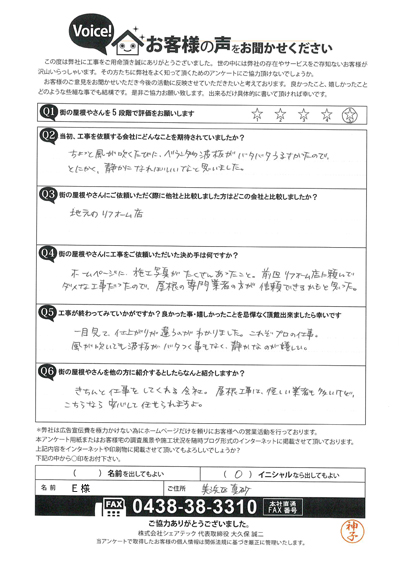 Voice!
お客様の声をお聞かせください
この度は弊社に工事をご用命頂き誠にありがとうございました。世の中には弊社の存在やサービスをご存知ないお客様が
沢山いらっしゃいます。その方たちに弊社をよく知って頂くためのアンケートにご協力頂けないでしょうか。
お客様のご意見をお聞かせいただき今後の活動に反映させていただきたいと考えております。良かったこと、嬉しかったこと
どのような些細な事でも結構です。是非ご協力お願い致します、出来るだけ具体的に書いて頂ければ幸いです。
Q1 街の屋根やさんを5段階で評価をお願いします
Q2 当初、工事を依頼する会社にどんなことを期待されていましたか?
ちょっと風が吹くたびに、ベランダの波板がバタバタうるさかったので、
とにかく、静かになればいいなと思いました。
Q3 街の屋根やさんにご依頼いただく際に他社と比較しました方はどこの会社と比較しましたか?
地元のリフォーム店
Q4 街の屋根やさんに工事をご依頼いただいた決め手は何ですか?
ホームページに、施工写真がたくさんあったこと。前回リフォーム店に頼んで
ダメな工事だったので、屋根の専門業者の方が信頼できるかもと思った。
Q5 工事が終わってみていかがですか?良かった事・嬉しかったことを忌憚なく頂戴出来ましたら幸いです
一目見て、仕上がりが違うのがわかりました。これぞプロの仕事。
風が吹いても波板がバタつく事もなく、静かなのが嬉しい。
Q6 街の屋根やさんを他の方に紹介するとしたらなんと紹介しますか?
きちんと仕事をしてくれる会社。屋根工事は、怪しい業者も多いけど、
こちらなら安心して任せられますよ。
※弊社は広告宣伝費を極力かけない為にホームページだけを頼りにお客様への営業活動を行っております。
本アンケート用紙またはお客様宅の調査風景や施工状況を随時ブログ形式でのインターネットに掲載させて頂いております。
上記内容をインターネットや印刷物に掲載させて頂いてもよろしいでしょうか?
下記の中から○印をお付下さい。
( )名前を出してもよい (O)イニシャルなら出してもよい
名前 E様 ご住所 美浜区真砂
FAX 0438-38-3310 本社直通FAX番号
ご協力ありがとうございました。
株式会社シェアテック 代表取締役 大久保 誠二
当アンケートで取得したお客様の個人情報は関係法規に基づき厳正に管理いたします。